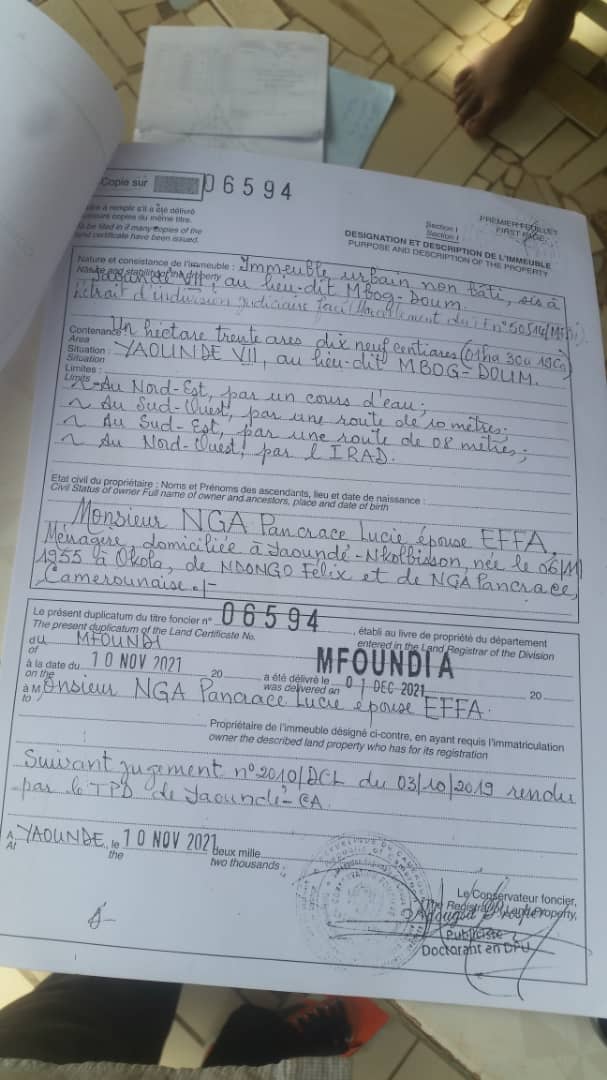 Copie sur 06594
à remplir s'il a été délivré
plusieurs copies du même titre.
to be filed in if many copies of the
land certificate have been issued.
Section I
Section I
PREMIER FEUILLET
FIRST PAGE
DESIGNATION ET DESCRIPTION DE L'IMMEUBLE
PURPOSE AND DESCRIPTION OF THE PROPERTY
Nature et consistance de l'immeuble : Immeuble urbain non bâti, sis à
Nature and stability of the property
Yaoundé VII, au lieu-dit Mbog-Doum.
Retrait d'indivision judiciaire
Contenance Un hectare trente ares dix neuf centiares (01ha 30a 19ca)
Area
Situation : YAOUNDE VII, au lieu-dit MBOG-DOUM.
Situation
Limites :
Limits
~ Au Nord-Est, par un cours d'eau ;
~ Au Sud-Ouest, par une route de 10 mètres ;
~ Au Sud-Est, par une route de 08 mètres ;
~ Au Nord-Ouest, par l'IRAD.
Etat civil du propriétaire : Noms et Prénoms des ascendants, lieu et date de naissance :
Civil Status of owner Full name of owner and ancestors, place and date of birth
Monsieur NGA Pancrace Lucie épouse EFFA,
Ménagère, domiciliée à Yaoundé-Nkolbisson, née le 06/11/
1955 à Okola, de NDONGO Félix et de NGA Pancrace,
Camerounaise.-/-
Le présent duplicatum du titre foncier n° 06594, établi au livre de propriété du département
The present duplicatum of the Land Certificate No. entered in the Land Registrar of the Division
du MFOUNDI MFOUNDI A
of
à la date du 10 NOV 2021 20 a été délivré le 01 DEC 2021 20
on the was delivered on
à Monsieur NGA Pancrace Lucie épouse EFFA.
to
Propriétaire de l'immeuble désigné ci-contre, en ayant requis l'immatriculation
owner the described land property who has for its registration
Suivant jugement n° 2010/DCL du 03/10/2019 rendu
par le TPD de Yaoundé-CA.
A YAOUNDE, le 10 NOV 2021 deux mille
At the two thousands :
Le Conservateur foncier,
The Registrar of Property,
Publiciste
Doctorant en DPU